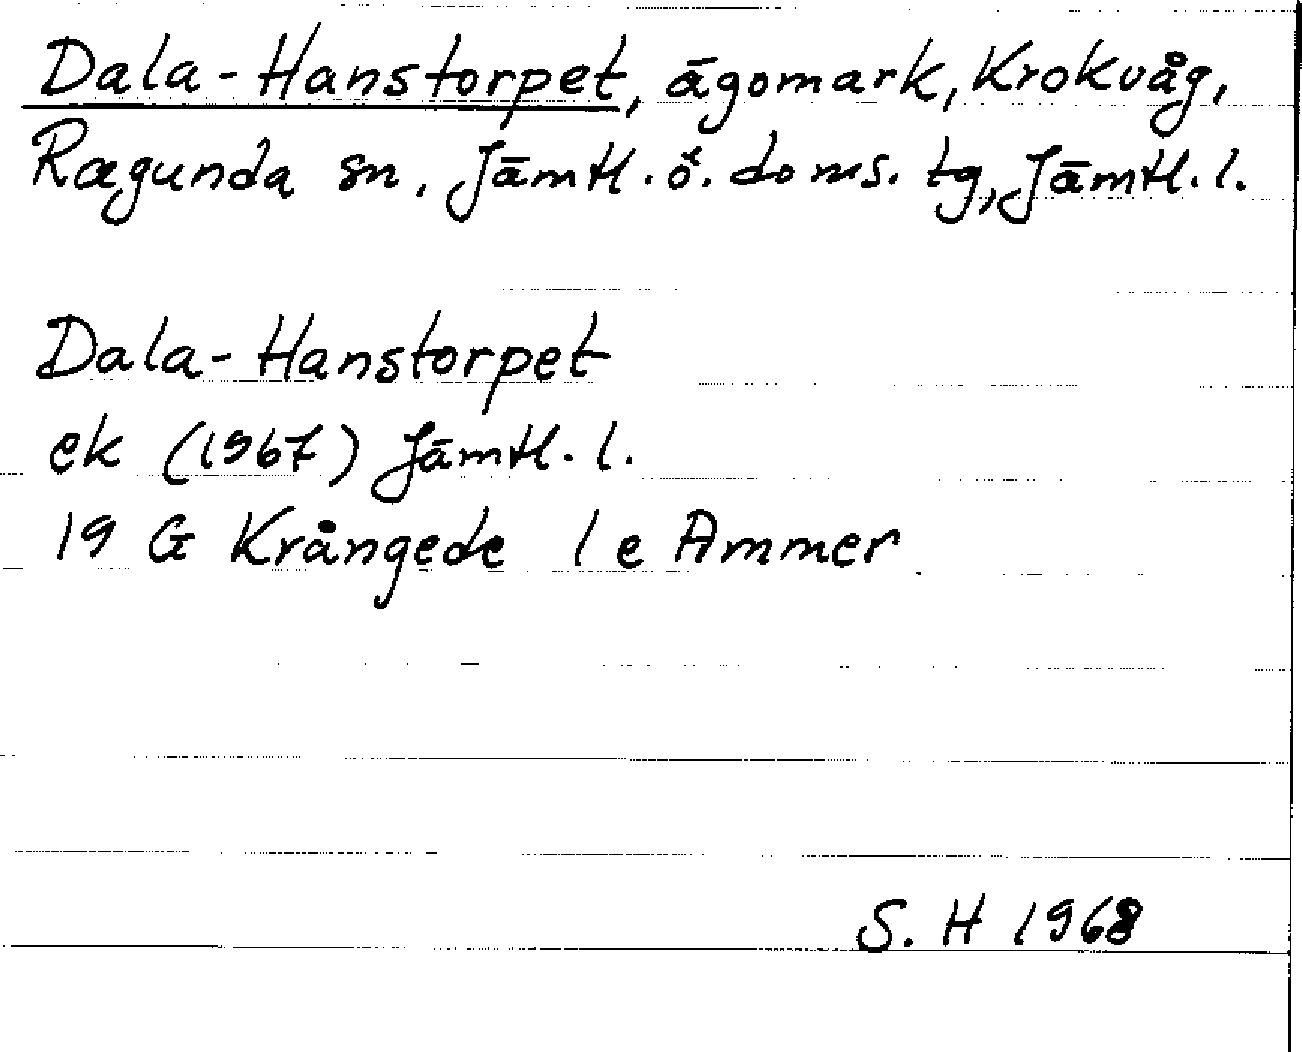 Dala-Hanstorpet, ägomark, Krokvåg,
Ragunda sn. Jämtl. ö. doms. tg, Jämtl. l.
Dala-Hanstorpet
ek (1967) Jämtl. l.
19 G Krångede 1 e Ammer
S. H 1968